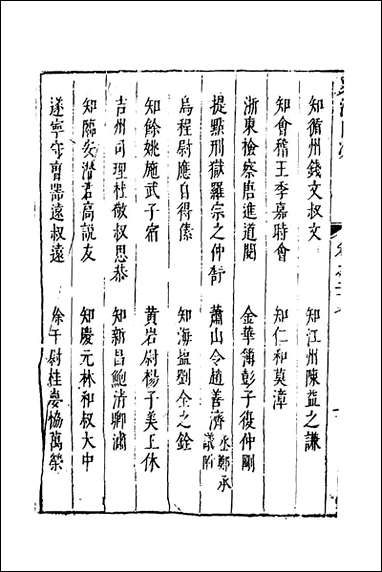 知循州錢文叔文
知江州陳益之謙
知會稽王季嘉時會
知仁和莫漳
浙東檢察唐進道閱
金華簿彭子復仲剛
提點刑獄羅宗之仲舒
蕭山令趙善濟
丞鄭承議昕
烏程尉應自得傃
知海鹽劉全之銓
知餘姚施武子宿
黃岩尉楊子美王休
吉州司理杜敬叔思恭
知新昌鮑清卿潚
知臨安潛君高說友
知慶元林和叔大中
遂寧守曹器遠叔遠
餘干尉桂萬榮